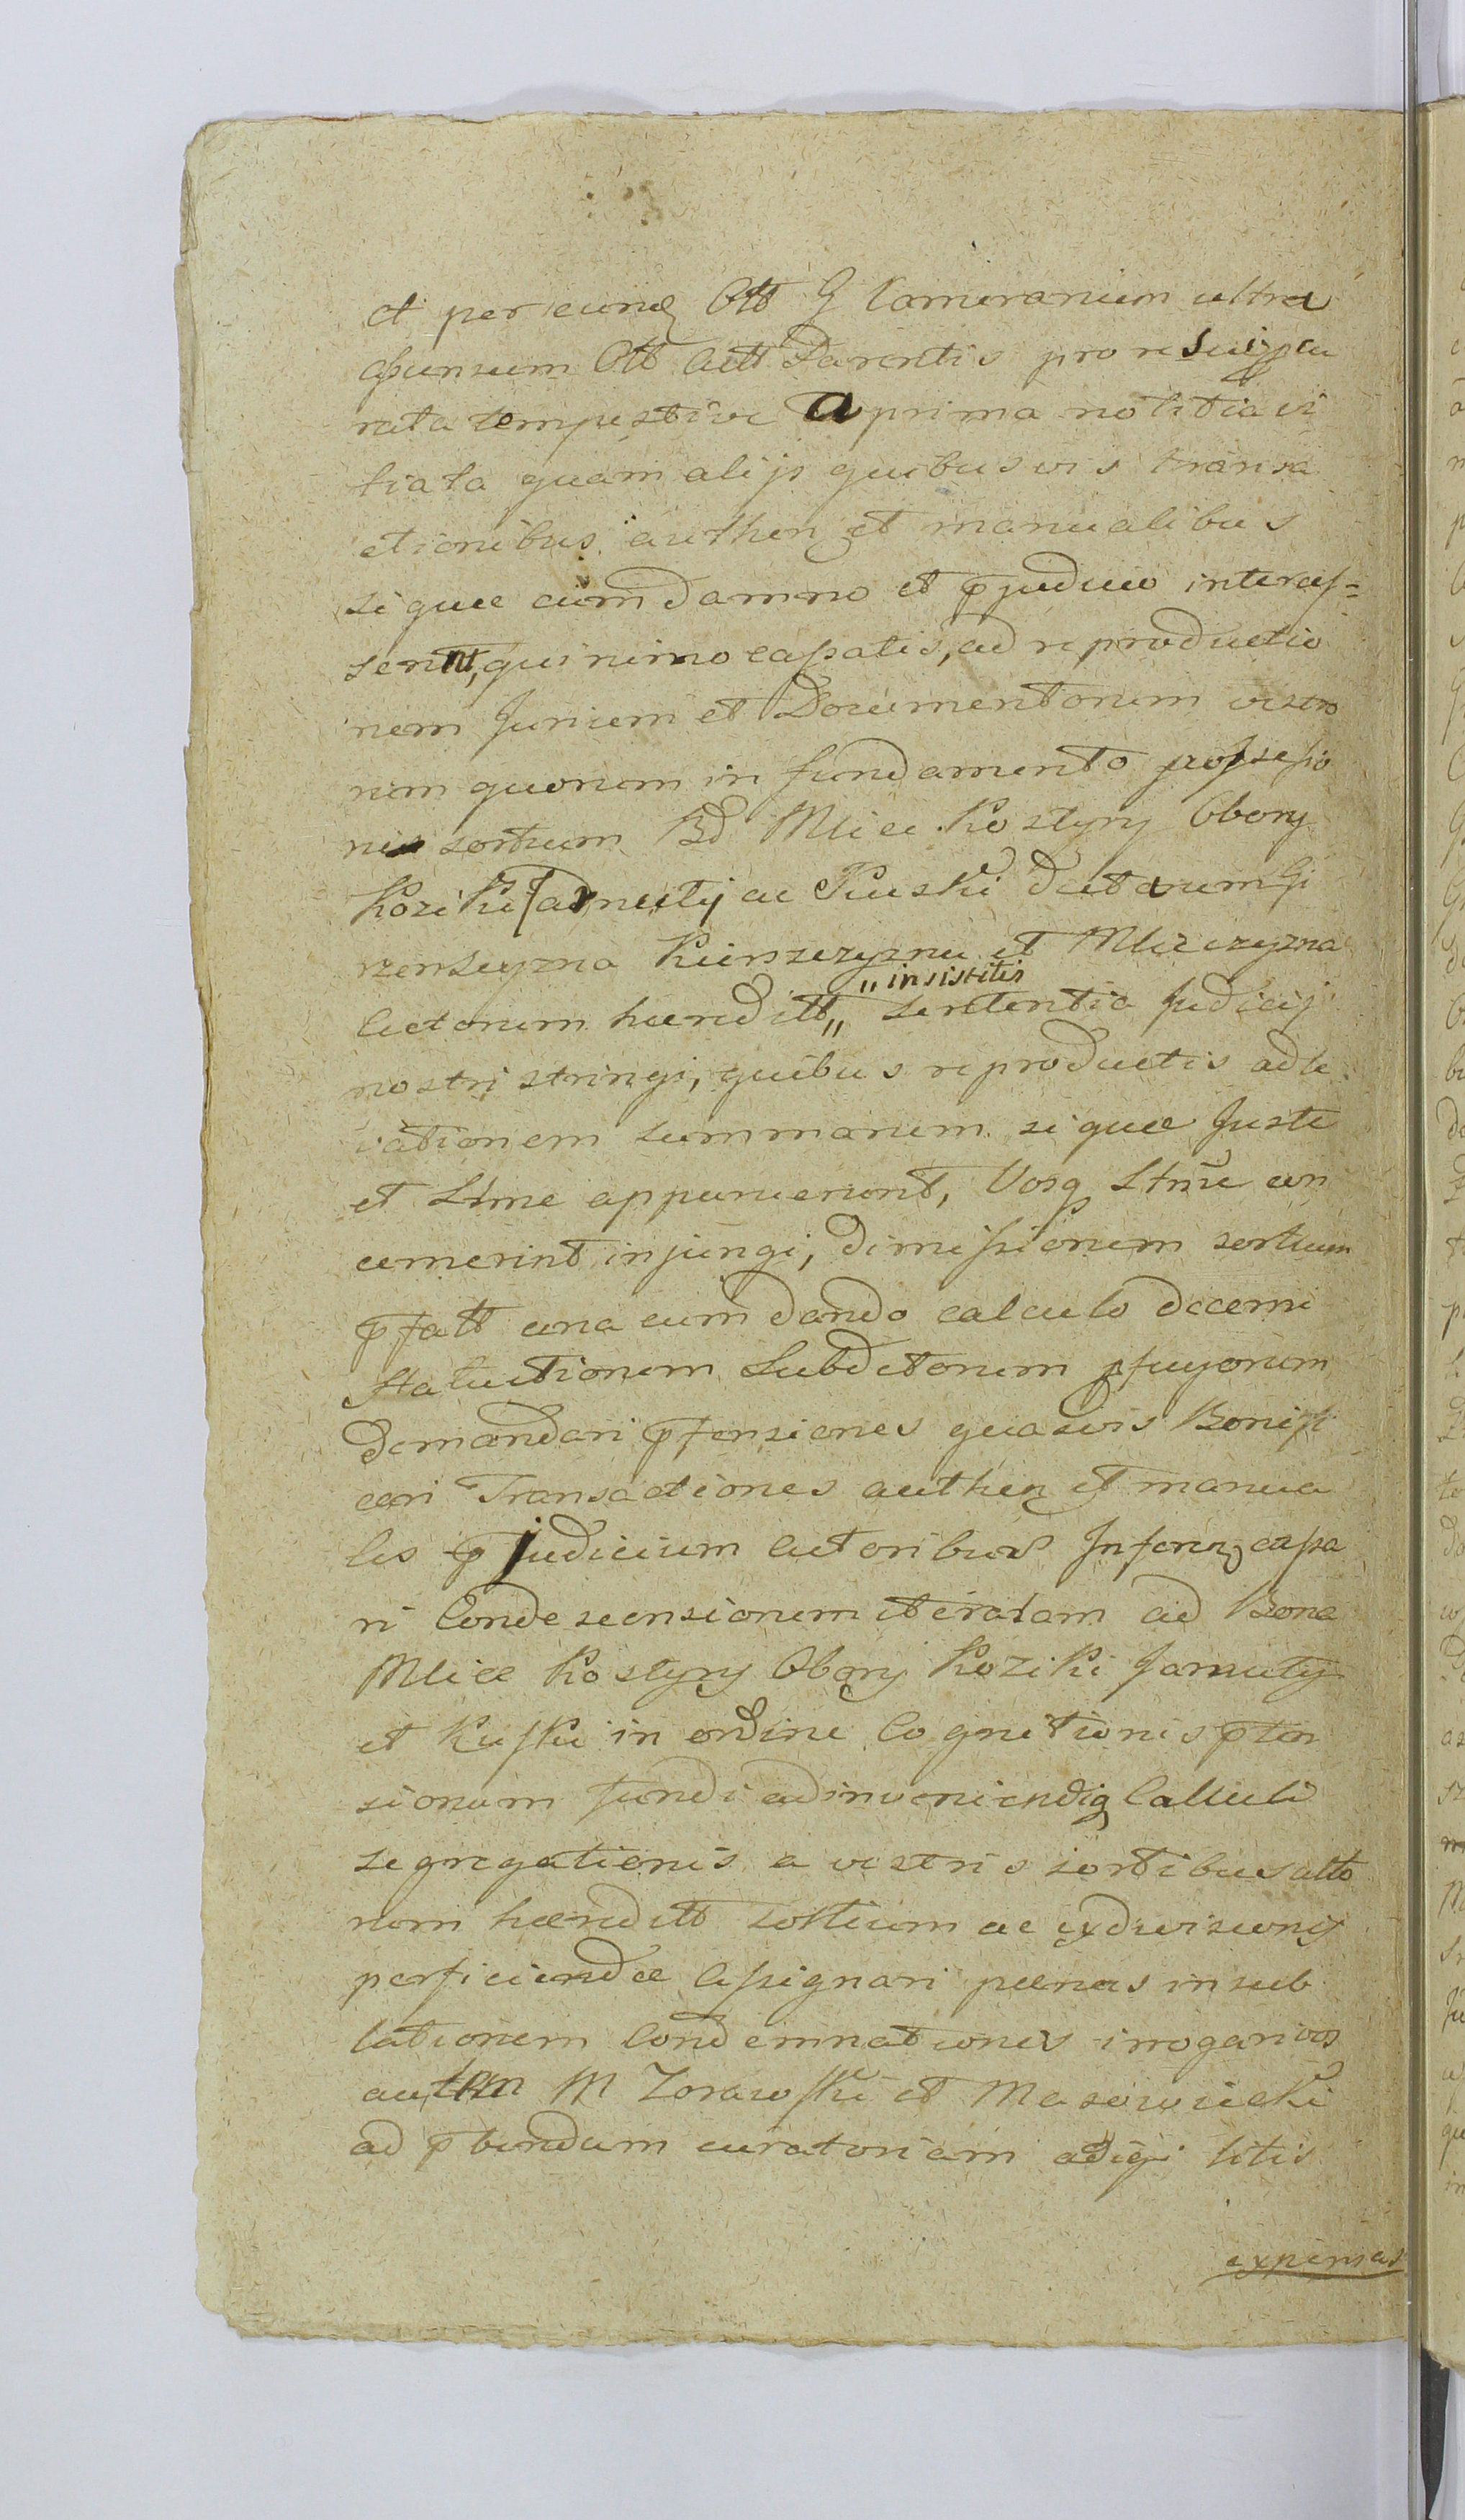 et per eund Ott G Cameranium ultra
apunsum Ott Actt Parentis pro re Suiz cu
rata tempestive a prima notitia vi
tiata quam alijs quibusvis transa
ctionibus authen et manualibus
si quæ cum damno et pjudicio interces=
serint, quinimo cassatis, ad reproductio
nem Jurium et Documentorum vestro
rum quorum in fundamento possessio
nis sortium Bd Mlice Kostyry Obory
Koziki Jarnuty ac Kuski dictarum Gi
rzensczyzna Kunszczyzna et Mleczyzna
Actorum hæreditt „ sententia Judicij
„ insistitis
nostri stringi, quibus reproductis ad le
vationem summarum si quæ Juste
et Ltme apparuerint, Vosq Ltme con
cernerint injungi, dimissionem sortium
pfatt una cum dando calculo decerni
Statutionem Subditorum pfugorum
demandari ptensiones quasvis Bonifi
cari Transactiones authen et manua
les pjudicium Actoribus Inferen cassa
ri Condescensionem iteratam ad Bona
Mlice Kostyry Obory Koziki Jarnuty
et Kuski in ordine Cognitionis pten
sionum fundi adinveniendiq Calculi
segregationis a vestris sortibus acto
rum hæreditt sortium ac exdivisionis
perficiendæ Assignari pœnas in sub
lationem Condemnationis irrogari vos
autem M Zorawski et Masowiecki
ad pbendum curatoriam adigi litis
expensas